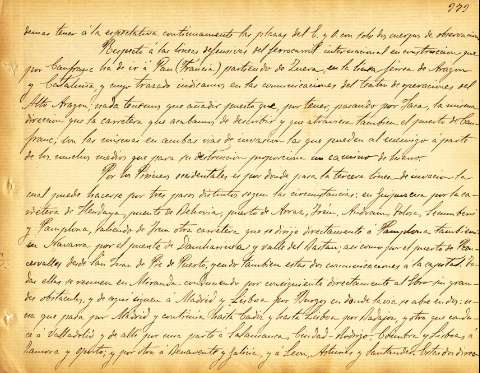 979
demas tener á la espectativa continuamente las plazas del E. y O. con solo dos cuerpos de observacion.
Respecto á las lineas defensivas del ferrocarril internacional en construccion, que
por Canfranc ha de ir á Pau (Francia) partiendo de Zuera, en la linea férrea de Aragon
y Cataluña, y cuyo trazado indicamos en las comunicaciones del Teatro de operaciones del
Alto Aragon, nada tenemos que añadir puesto que, por tener, pasando por Jaca, la misma
direccion que la carretera que acabamos de describir y que atraviesa tambien el puerto de Can-
franc, son las mismas en ambas vias de invasion las que pueden al enemigo á parte
de los muchos medios que para su destruccion proporciona un camino de hierro.
Por los Pirineos occidentales es por donde pasa la tercera linea de invasion la
cual puede hacerse por tres pasos distintos segun las circunstancias: en Guipuzcoa por la ca-
rretera de Hendaya, puente de Behovia, puerto de Irun, Andoain, Tolosa,
y Pamplona, saliendo de Irun otra carretera que se dirije directamente á Pamplona tambien
en Navarra por el puente de Dancharinea y valle del Baztan; asi como por el puerto de Ron-
cesvalles desde San Juan de Pie de Puerto, yendo tambien estas dos comunicaciones á la capital. To-
das ellas se reunen en Miranda continuando por consiguiente directamente al Ebro sin gran-
des obstáculos, y de aqui siguen á Madrid y Lisboa por Burgos en donde la via se abre en dos: u-
na que pasa por Madrid y continúa hasta Cádiz y hasta Lisboa por Badajoz, y otra que condu-
ce á Valladolid y de alli por una parte á Salamanca, Ciudad-Rodrigo, Coimbra y Lisboa, á
Zamora y Oporto; y por otra á Benavente y Galicia, y á Leon, Asturias y Santander. Estas dos direc-